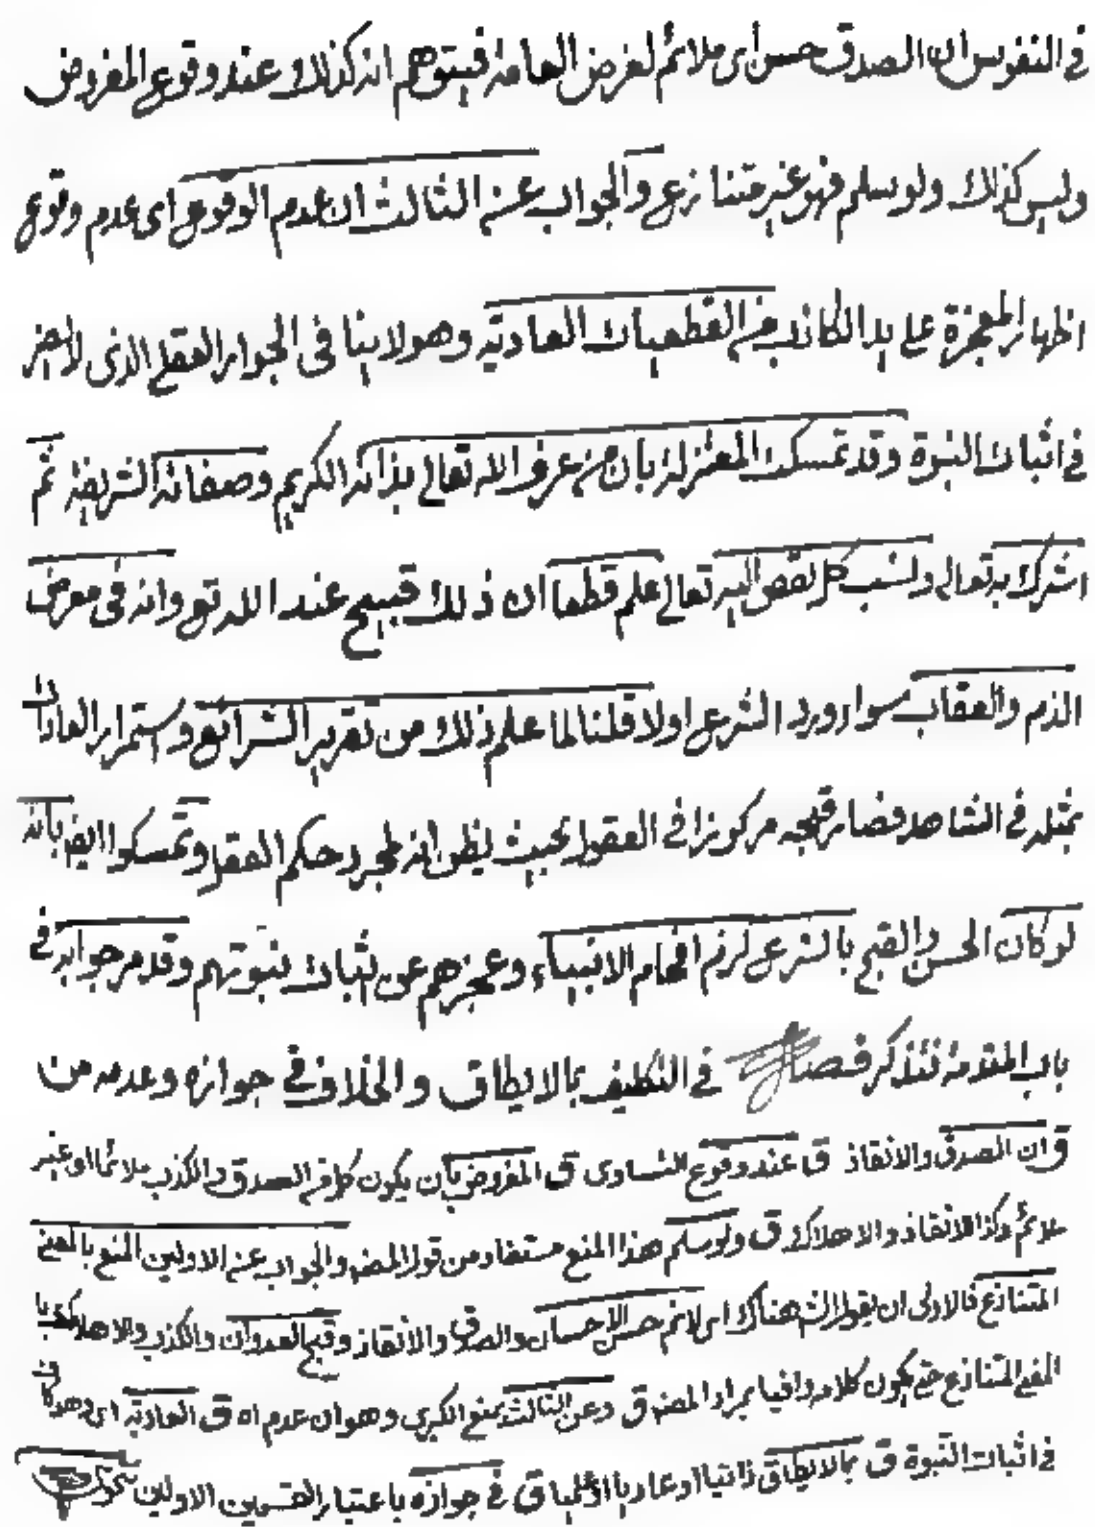 في النفوس ان الصدق حسن أى ملائم لغرض العامة فيتوهم انه كذلك وعند وقوع المفروض
وليس كذلك ولو سلم فهو غير متنازع والجواب عن الثالث ان عدم الوقوع اى عدم وقوع
اظهار المعجزة على يد الكاذب من القطعيات العادية وهو لا ينافى الجواز العقلى الذى لا يضر
في اثبات النبوة وقد تمسكت المعتزلة بان من عرف الله تعالى بذاته الكريم وصفاته الشريفة ثم
اشرك به تعالى ونسب كل نقص اليه تعالى علم قطعا ان ذلك قبيح عند الله تع وانه في معرض
الذم والعقاب سواء ورد الشرع او لا قلنا لما علم ذلك من تقرير الشرائع واستمرار العادات
بمثله في الشاهد فصار قبحه مركوزا في العقول بحيث يظن انه لمجرد حكم العقل وتمسكوا ايض بانه
لو كان الحسن والقبح بالشرع لزم افحام الانبياء وعجزهم عن اثبات نبوتهم وقد مر جوابه في
باب المقدمة فتذكر فصل في التكليف بما لا يطاق والخلاف في جوازه وعدمه من
ق ان الصدق والانقاذ ق عند وقوع التساوى ق المفروض بان يكون كل من الصدق والكذب ملائما او غير
ملائم وكذا الانقاذ والاهلاك ق ولو سلم هذا المنع مستفاد من قول المصه والجواب عن الاولين المنع بالمعنى
المتنازع فالاولى ان يقول الشه هناك اى لا نم حسن الاحسان والصدق والانقاذ وقبح العدوان والكذب والاهلاك با
المعنى المتنازع حتى يكون كلامه وافيا بمراد المصه ق وعن الثالث بمنع الكبرى وهو ان عدم اه ق العادية اى وهو كاف
في اثبات النبوة ق بما لا يطاق ذاتيا او عاديا ق في جوازه باعتبار القسمين الاولين